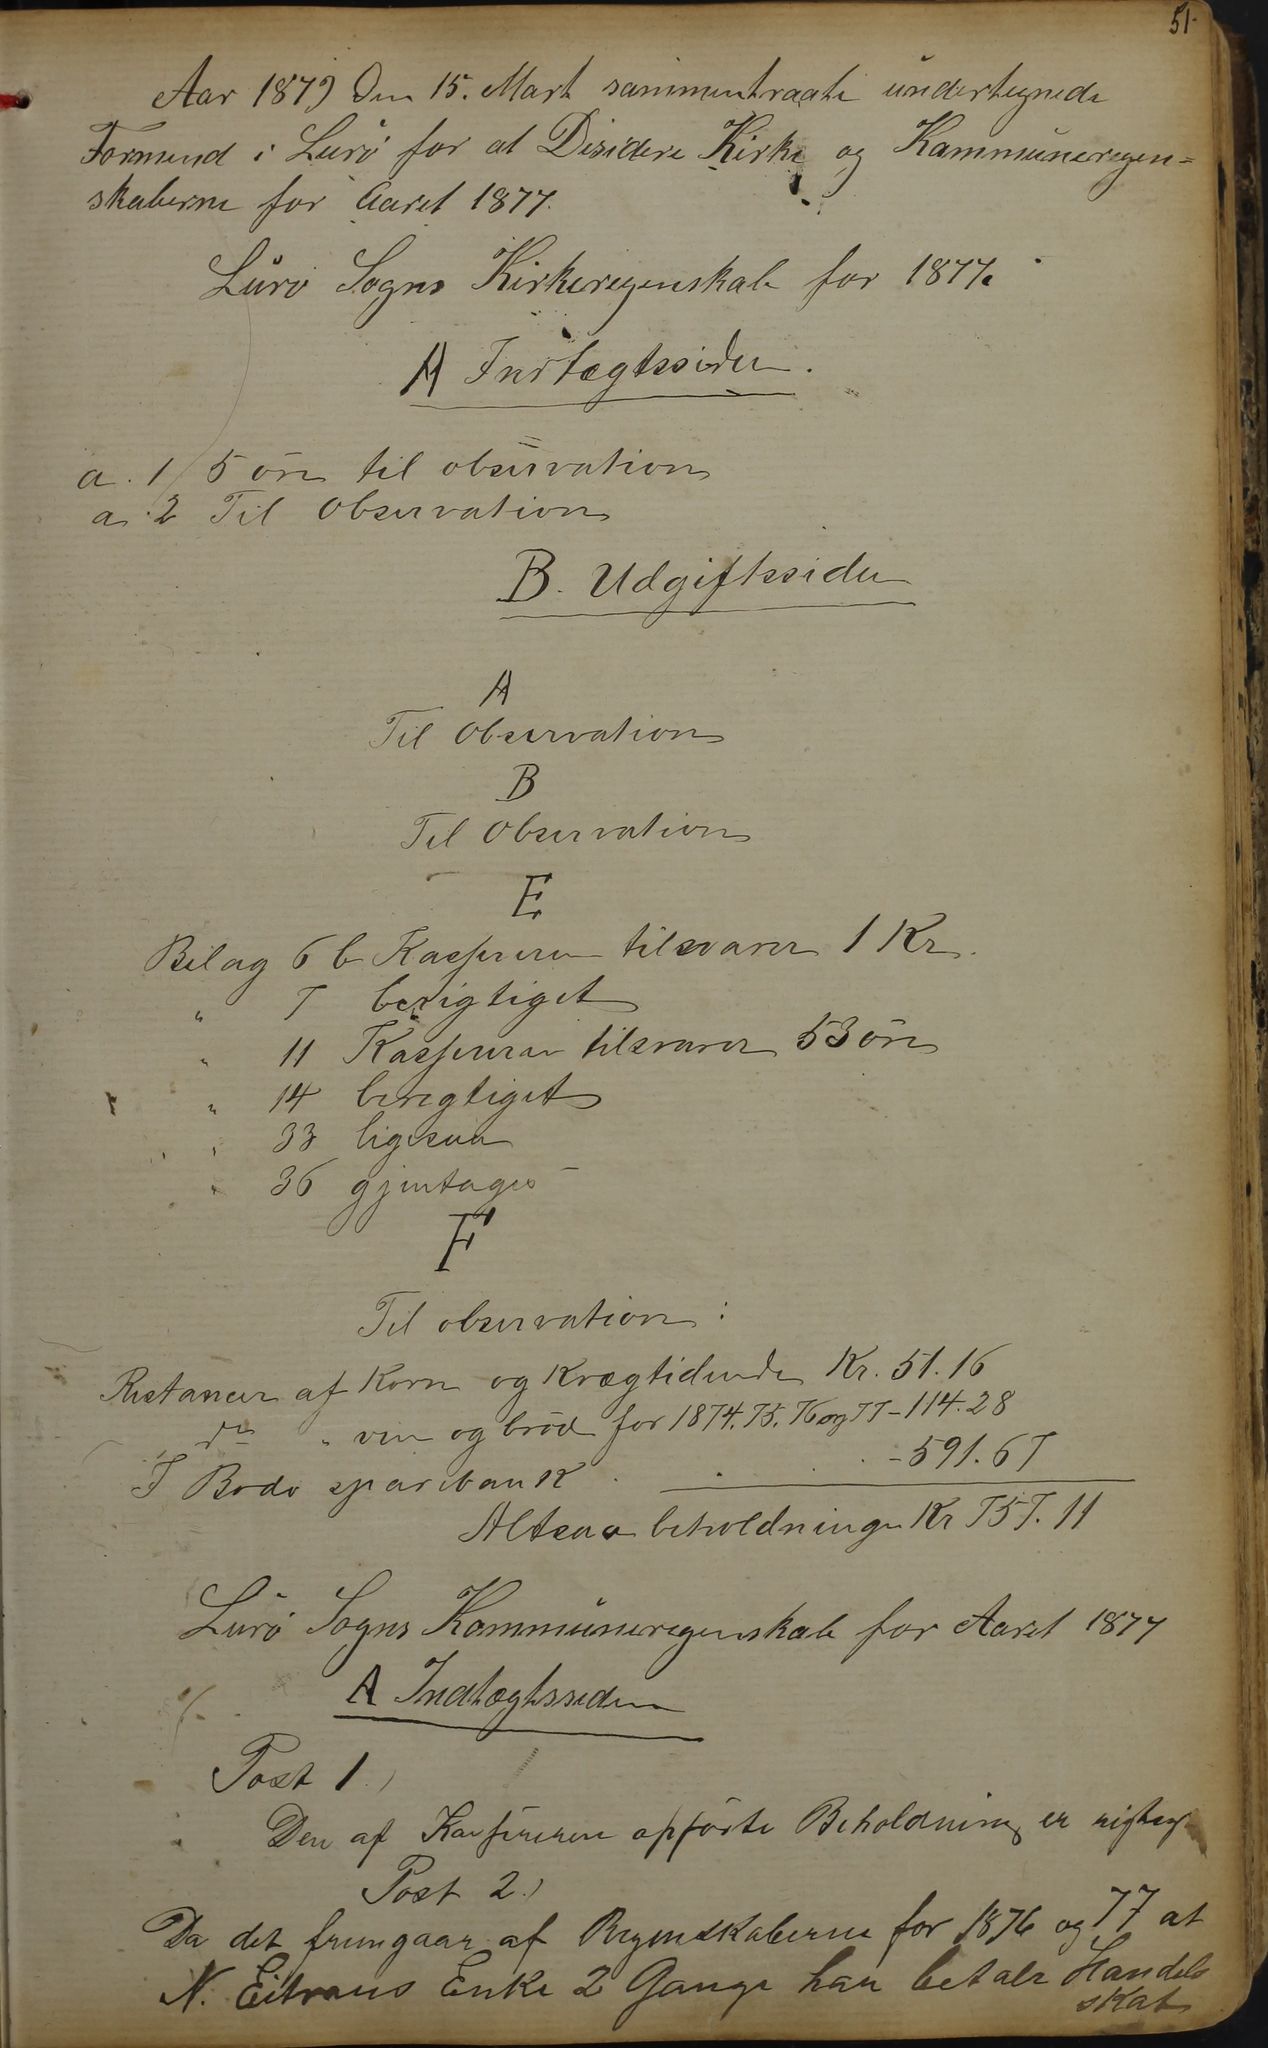 51.
Aar 1879 Den 15. Mart sammentraate undertegnede
Formend i Lurö for at Desidere Kirke og Kommuneregen=
skaberne for Aaret 1877.
Lurö Sogns Kirkeregenskab for 1877.
A Indtægtssiden.
a. 1 5 öre til observation
a. 2 Til Observation
B. Udgiftssiden
A
Til Observation
B
Til Observation
E
Bilag 6 b Kassereren tilsvarer 1 Kr.
" 7 berigtiget
" 11 Kassereren tilsvarer 53 öre
" 14 berigtiget
" 33 ligesaa
" 36 gjentages
F
Til observation :
Restancer af Korn og Kvægtidende Kr. 51.16
do " vin og bröd for 1874. 75. 76 og 77 - 114.28
I Bodö sparebank . . . . - 591.67
Altsaa beholdninge Kr 757.11
Lurö Sogns Kommuneregenskab for Aaret 1877
A Indtægtssiden
Post 1.)
Den af Kassereren opförte Beholdning er rigtig
Post 2.)
Da det fremgaar af Regenskaberne for 1876 og 77 at
N. Eitrans Enke 2 Gange har betalt Handels
skat